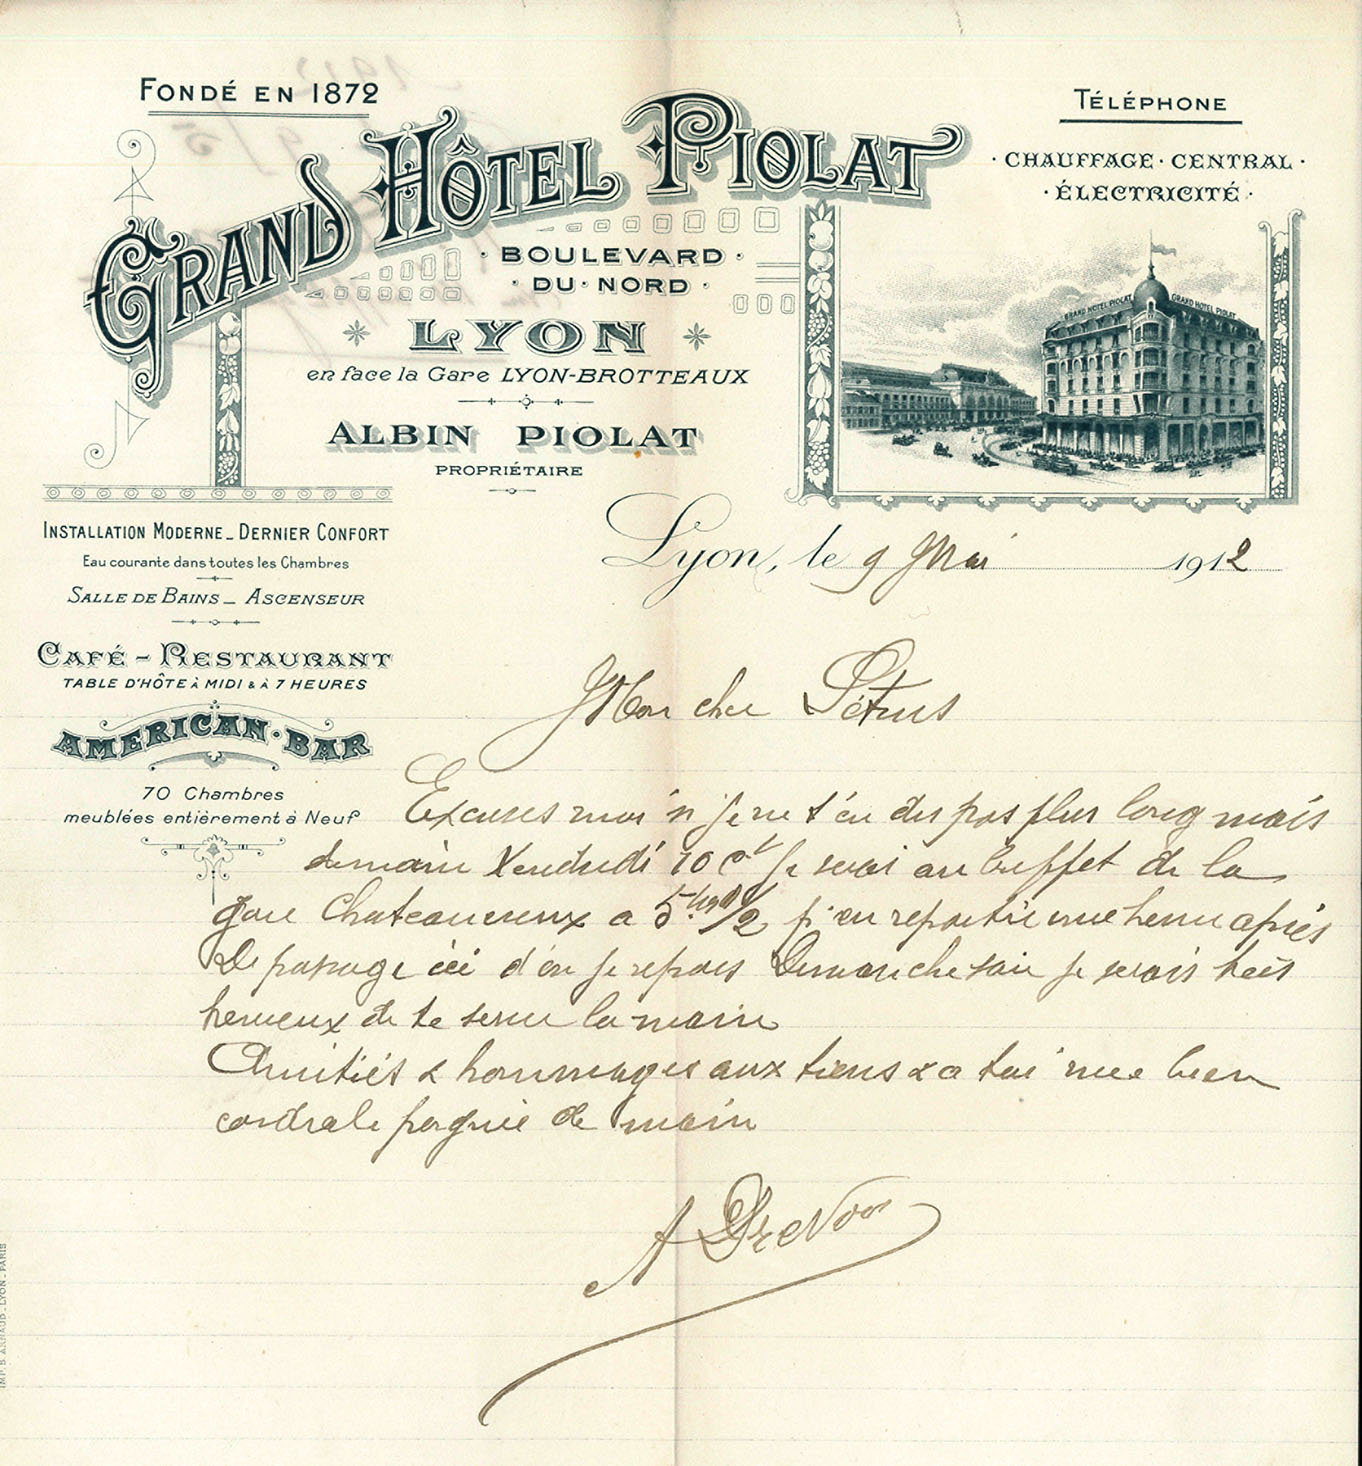 FONDÉ EN 1872
GRAND HÔTEL PIOLAT
TÉLÉPHONE
· CHAUFFAGE · CENTRAL ·
· ÉLECTRICITÉ ·
· BOULEVARD ·
· DU · NORD ·
LYON
en face la Gare LYON-BROTTEAUX
ALBIN PIOLAT
PROPRIÉTAIRE
GRAND HOTEL PIOLAT GRAND HOTEL PIOLAT
INSTALLATION MODERNE _ DERNIER CONFORT
Eau courante dans toutes les Chambres
SALLE DE BAINS _ ASCENSEUR
CAFÉ - RESTAURANT
TABLE D'HÔTE À MIDI & À 7 HEURES
AMERICAN · BAR
70 Chambres
meublées entièrement à Neuf
Lyon, le 9 Mai 1912
Mon cher
Excuses moi si je ne t'en dis pas plus long mais
demain Vendredi 10 ct je serai au buffet de la
gare Chateaucreux a 5 1/2 j'en repartir une heure après
De passage ici d'où je repars Dimanche soir je serais très
heureux de te serrer la main
Amitiés & hommages aux tiens & a toi une bien
cordiale poignée de main
IMP. B. ARNAUD _ LYON _ PARIS